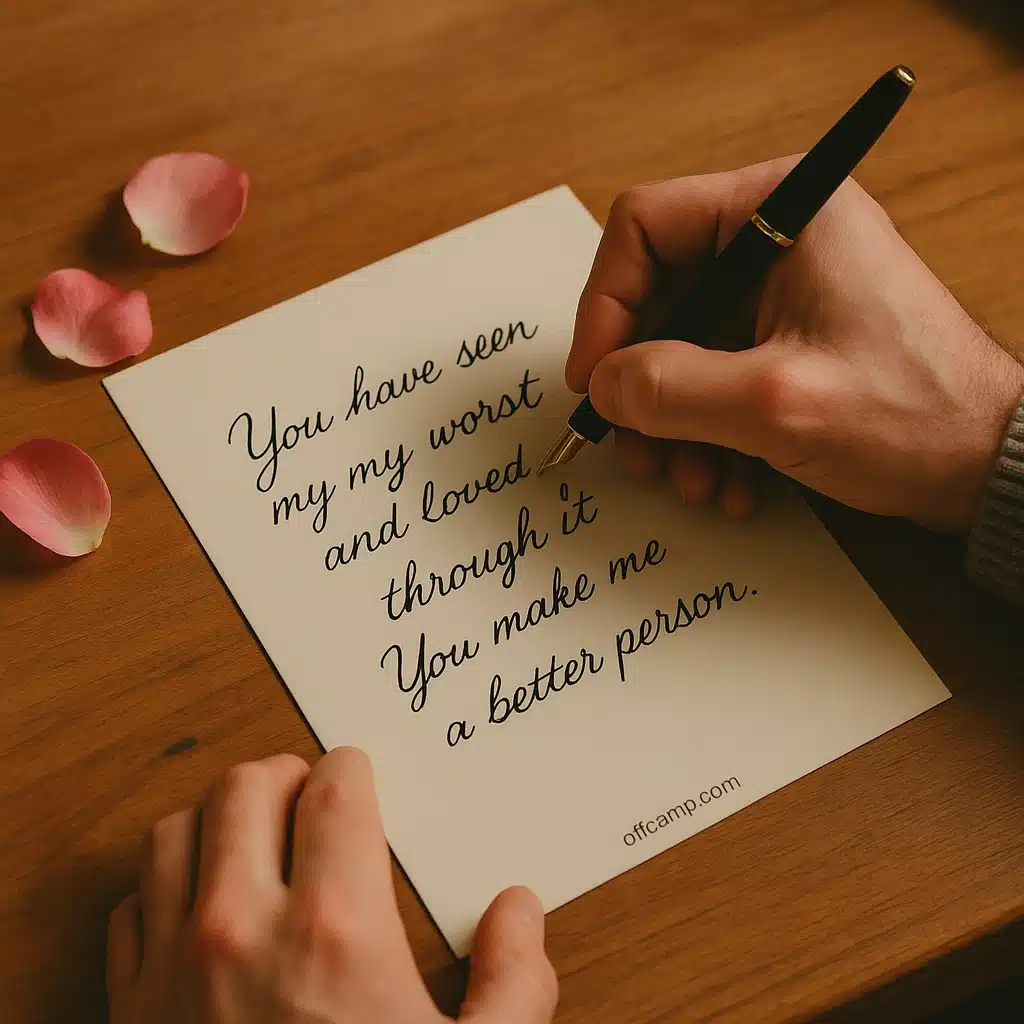 You have seen
my my worst
and loved
through it
You make me
a better person.
offcamp.com